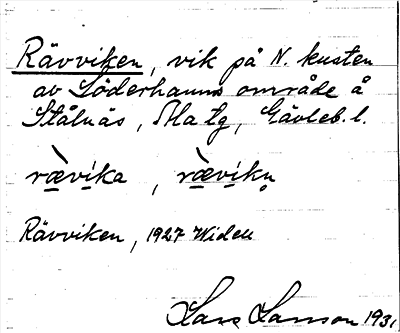 Rävviken, vik på N. kusten
av Söderhamns område å
Stålnäs, Gävleb. l.
ræ̀vika, rævikn̥
Rävviken, 1927 Widell
Lars Larsson 1931